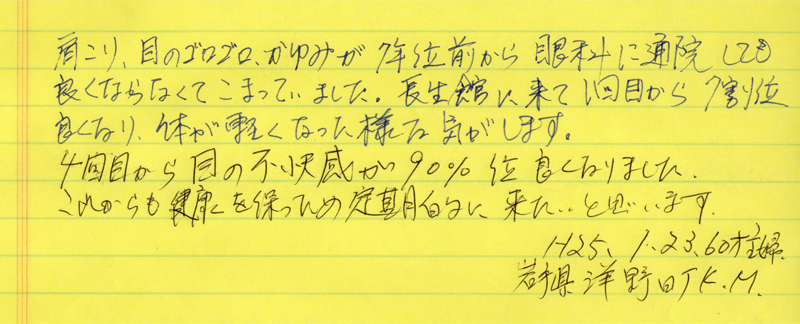 肩こり、目のゴロゴロ、かゆみが7年位前から眼科に通院しても
良くならなくてこまっていました。長生館に来て1回目から7割位
良くなり、体が軽くなった様な気がします。
4回目から目の不快感が90%位良くなりました。
これからも健康を保つため定期的に来たいと思います。
H25、1.23、60才主婦
岩手県洋野町K.M.